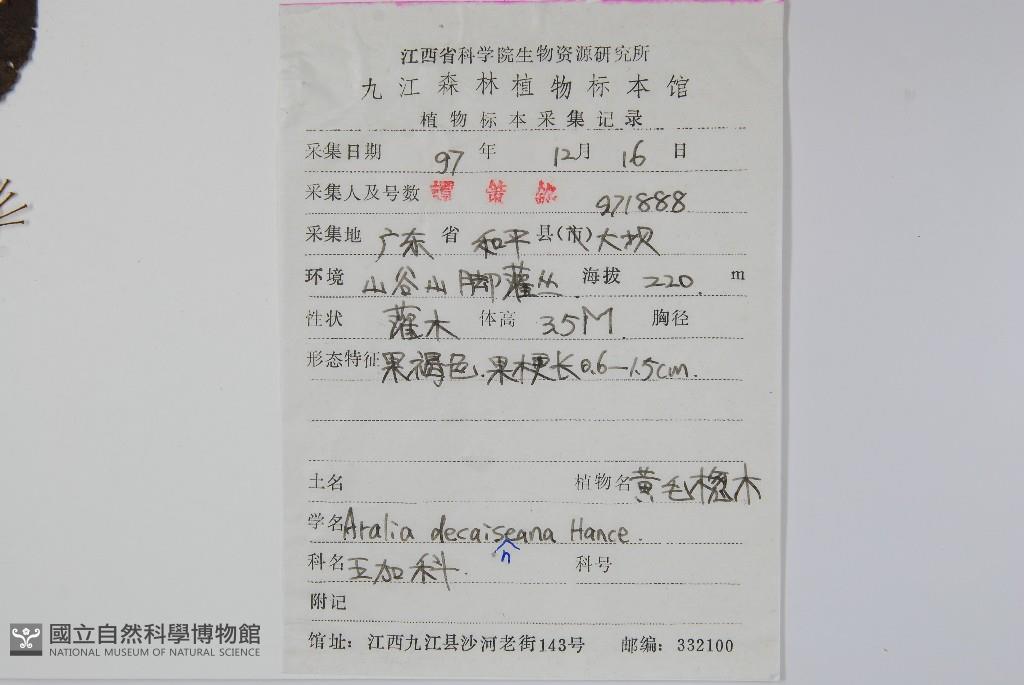 江西省科学院生物资源研究所
九江森林植物标本馆
植物标本采集记录
采集日期 97 年 12月 16 日
采集人及号数 譚策銘 971888
采集地 广东 省 和平 县(市) 大坝
环境 山谷山脚灌丛. 海拔 220. m
性状 灌木 体高 3.5M 胸径
形态特征 果褐色.果梗长0.6—1.5cm.
土名 植物名 黄毛楤木
学名 Aralia decaiseana Hance.
n
科名 五加科. 科号
附记
馆址：江西九江县沙河老街143号 邮编：332100
國立自然科學博物館
NATIONAL MUSEUM OF NATURAL SCIENCE